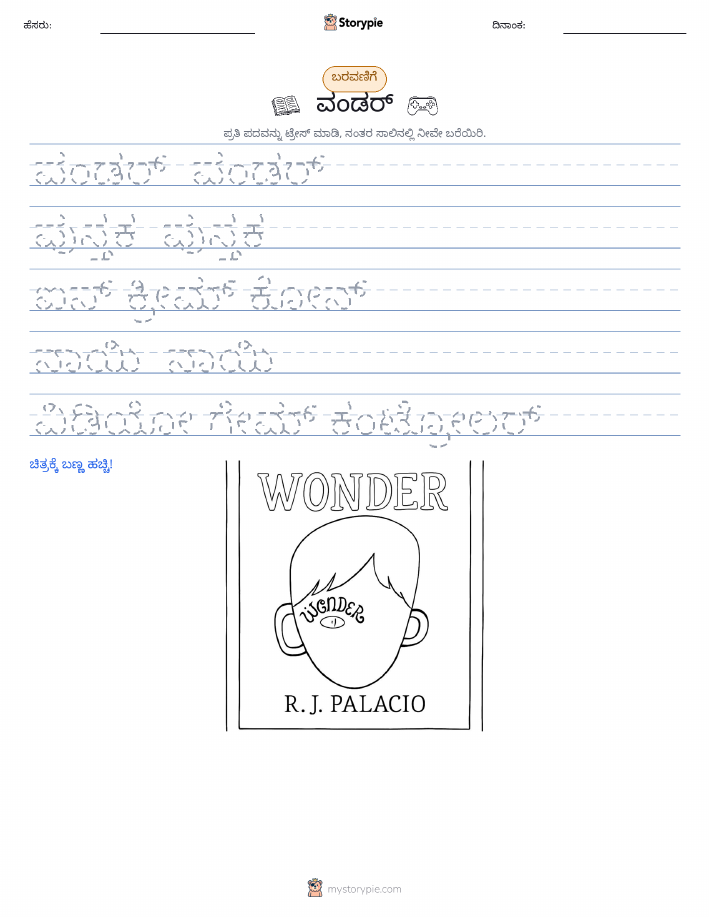 ಹೆಸರು:
Storypie
ದಿನಾಂಕ:
ಬರವಣಿಗೆ
ವಂಡರ್
ಪ್ರತಿ ಪದವನ್ನು ಟ್ರೇಸ್ ಮಾಡಿ, ನಂತರ ಸಾಲಿನಲ್ಲಿ ನೀವೇ ಬರೆಯಿರಿ.
ವಂಡರ್ ವಂಡರ್
ಪುಸ್ತಕ ಪುಸ್ತಕ
ಐಸ್ ಕ್ರೀಮ್ ಕೋನ್
ನಾಯಿ ನಾಯಿ
ವಿಡಿಯೋ ಗೇಮ್ ಕಂಟ್ರೋಲರ್
ಚಿತ್ರಕ್ಕೆ ಬಣ್ಣ ಹಚ್ಚಿ!
WONDER
WONDER
R. J. PALACIO
mystorypie.com